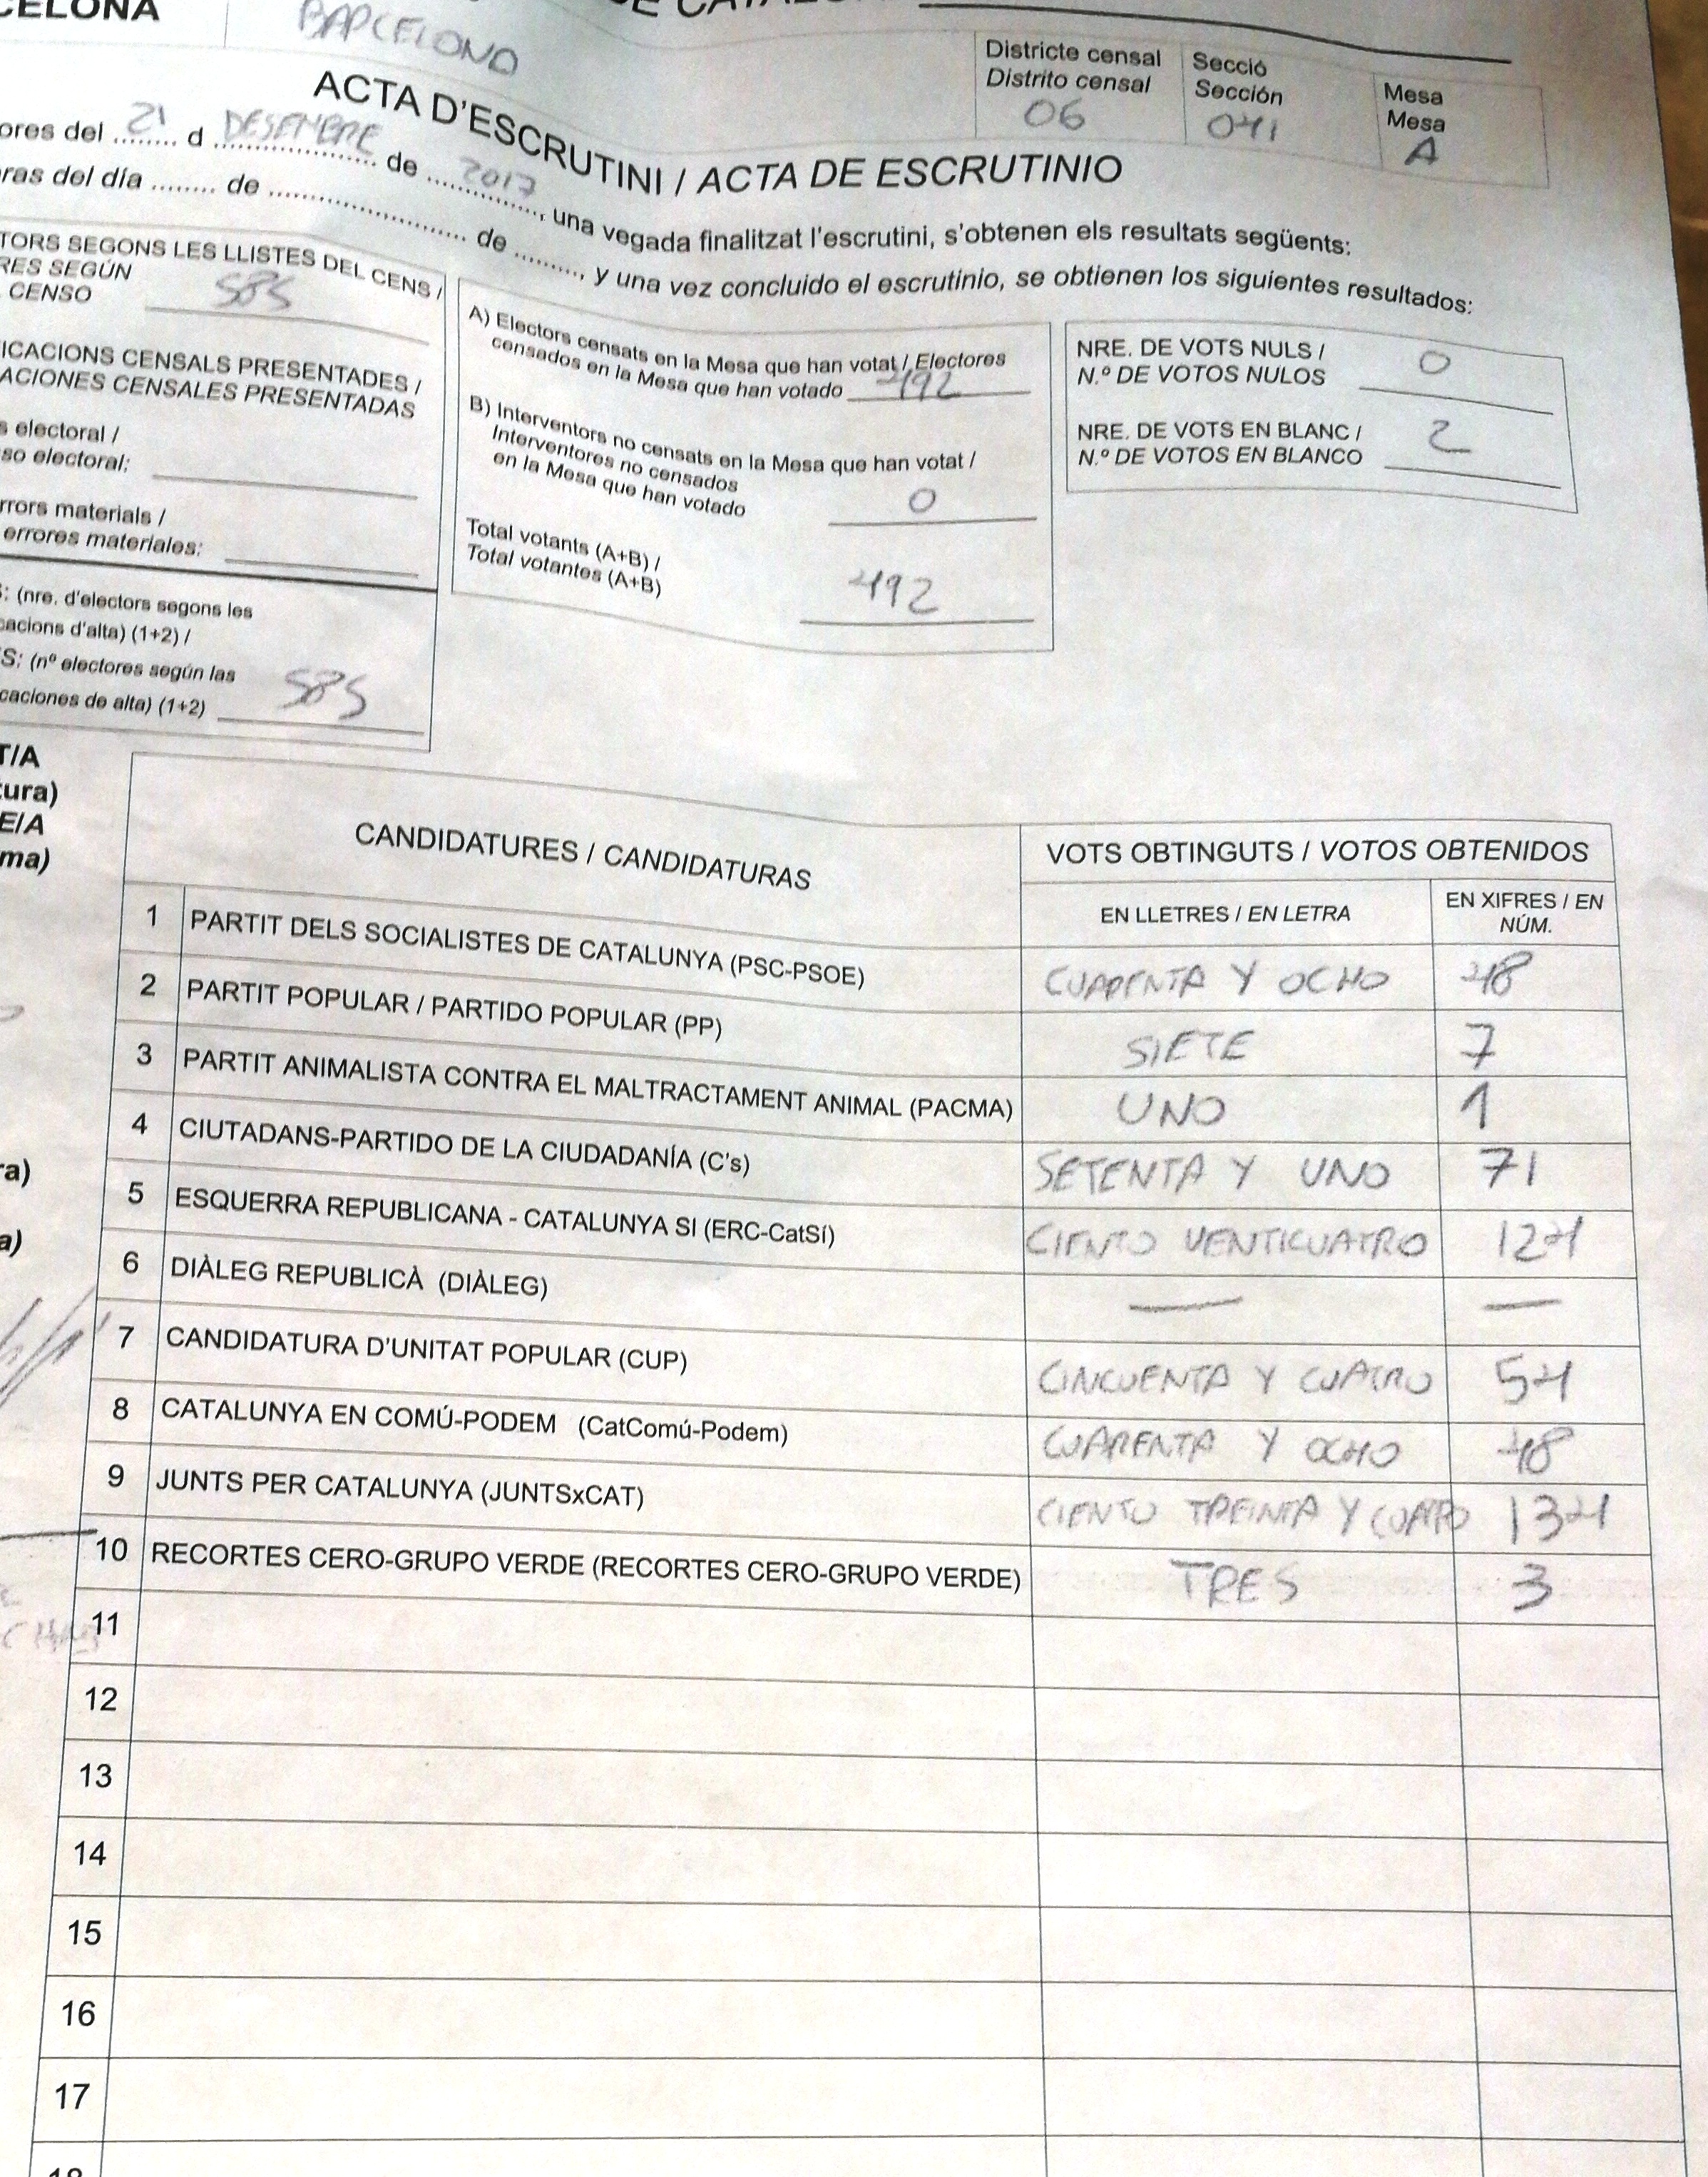 CELONA
BARCELONA
DE CATAL
Districte censal
Distrito censal
06
Secció
Sección
041
Mesa
Mesa
A
ACTA D'ESCRUTINI / ACTA DE ESCRUTINIO
ores del 21 d DESEMBRE de 2017, una vegada finalitzat l'escrutini, s'obtenen els resultats següents:
ras del día ........ de ........................ de ........., y una vez concluido el escrutinio, se obtienen los siguientes resultados:
TORS SEGONS LES LLISTES DEL CENS /
RES SEGÚN
CENSO 585
ICACIONS CENSALS PRESENTADES /
ACIONES CENSALES PRESENTADAS
s electoral /
so electoral:
rrors materials /
errores materiales:
S: (nre. d'electors segons les
cacions d'alta) (1+2) /
S: (nº electores según las
caciones de alta) (1+2) 585
A) Electors censats en la Mesa que han votat / Electores
censados en la Mesa que han votado 492
B) Interventors no censats en la Mesa que han votat /
Interventores no censados
en la Mesa que han votado 0
Total votants (A+B) /
Total votantes (A+B) 492
NRE. DE VOTS NULS /
N.º DE VOTOS NULOS 0
NRE. DE VOTS EN BLANC /
N.º DE VOTOS EN BLANCO 2
T/A
tura)
E/A
ma)
ra)
a)
CANDIDATURES / CANDIDATURAS
VOTS OBTINGUTS / VOTOS OBTENIDOS
EN LLETRES / EN LETRA
EN XIFRES / EN
NÚM.
1 PARTIT DELS SOCIALISTES DE CATALUNYA (PSC-PSOE) CUARENTA Y OCHO 48
2 PARTIT POPULAR / PARTIDO POPULAR (PP) SIETE 7
3 PARTIT ANIMALISTA CONTRA EL MALTRACTAMENT ANIMAL (PACMA) UNO 1
4 CIUTADANS-PARTIDO DE LA CIUDADANÍA (C's) SETENTA Y UNO 71
5 ESQUERRA REPUBLICANA - CATALUNYA SI (ERC-CatSí) CIENTO VENTICUATRO 124
6 DIÀLEG REPUBLICÀ (DIÀLEG) — —
7 CANDIDATURA D'UNITAT POPULAR (CUP) CINCUENTA Y CUATRO 54
8 CATALUNYA EN COMÚ-PODEM (CatComú-Podem) CUARENTA Y OCHO 48
9 JUNTS PER CATALUNYA (JUNTSxCAT) CIENTO TREINTA Y CUATRO 134
10 RECORTES CERO-GRUPO VERDE (RECORTES CERO-GRUPO VERDE) TRES 3
11
12
13
14
15
16
17
18